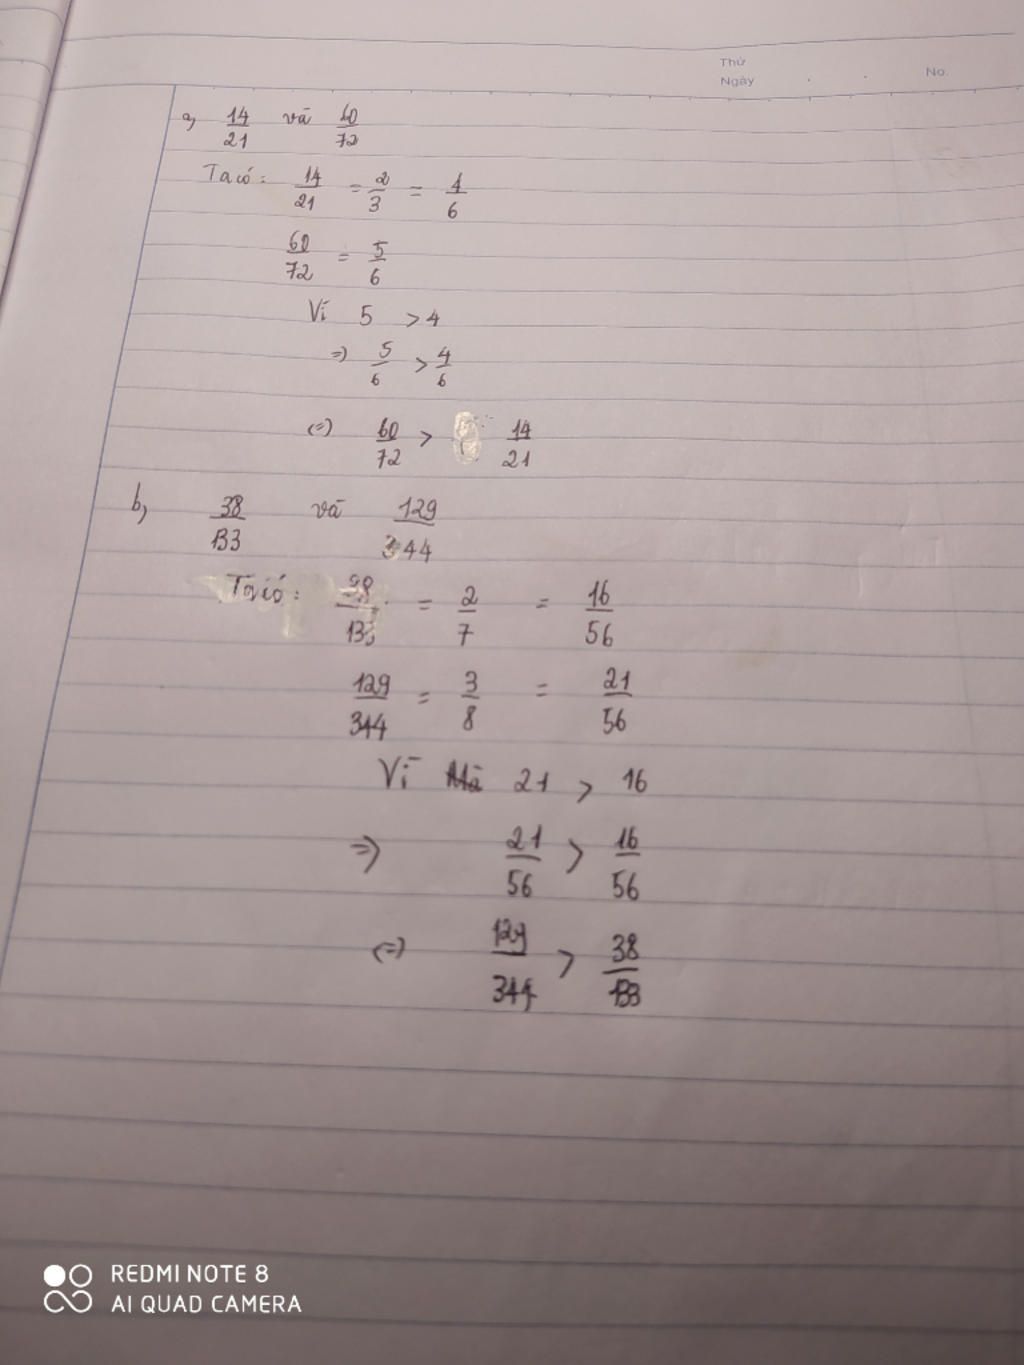 Thứ
Ngày No.
a, 14/21 và 60/72
Ta có: 14/21 = 2/3 = 4/6
60/72 = 5/6
Vì 5 > 4
=> 5/6 > 4/6
(=) 60/72 > 14/21
b, 38/133 và 129/344
Ta có: 38/133 = 2/7 = 16/56
129/344 = 3/8 = 21/56
Vì 21 > 16
=> 21/56 > 16/56
(=) 129/344 > 38/133
REDMI NOTE 8
AI QUAD CAMERA